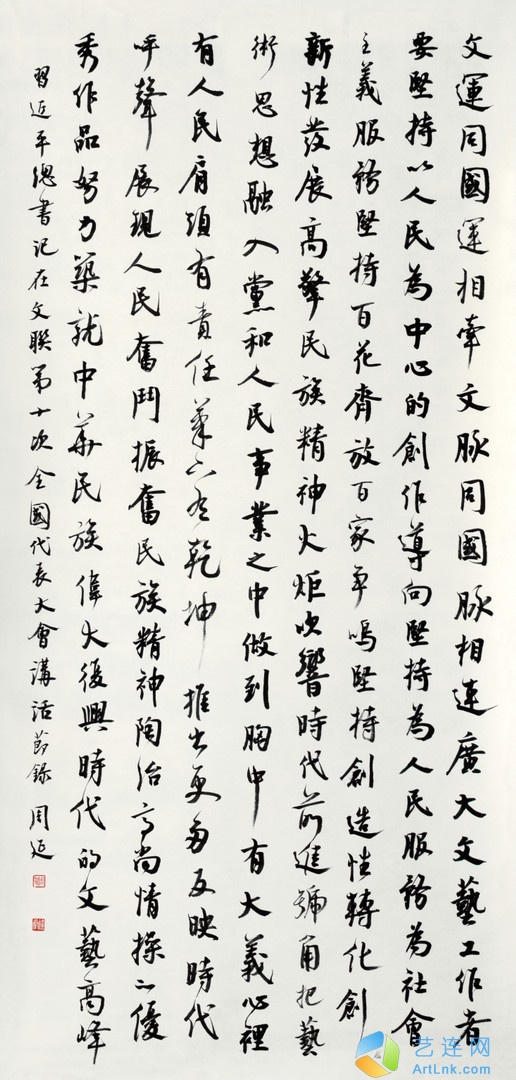 文運同國運相牽文脉同國脉相連廣大文藝工作者
要堅持以人民為中心的創作導向堅持為人民服務為社會
主義服務堅持百花齊放百家争鳴堅持創造性轉化創
新性發展高擎民族精神火炬吹響時代前進號角把藝
術思想融入黨和人民事業之中做到胸中有大義心裡
有人民肩頭有責任筆下有乾坤推出更多反映時代
呼聲展現人民奮鬥振奮民族精神陶冶高尚情操的優
秀作品努力築就中華民族偉大復興時代的文藝高峰
習近平總書記在文聯第十次全國代表大會講話節錄周延
艺连网
ArtLnk.com